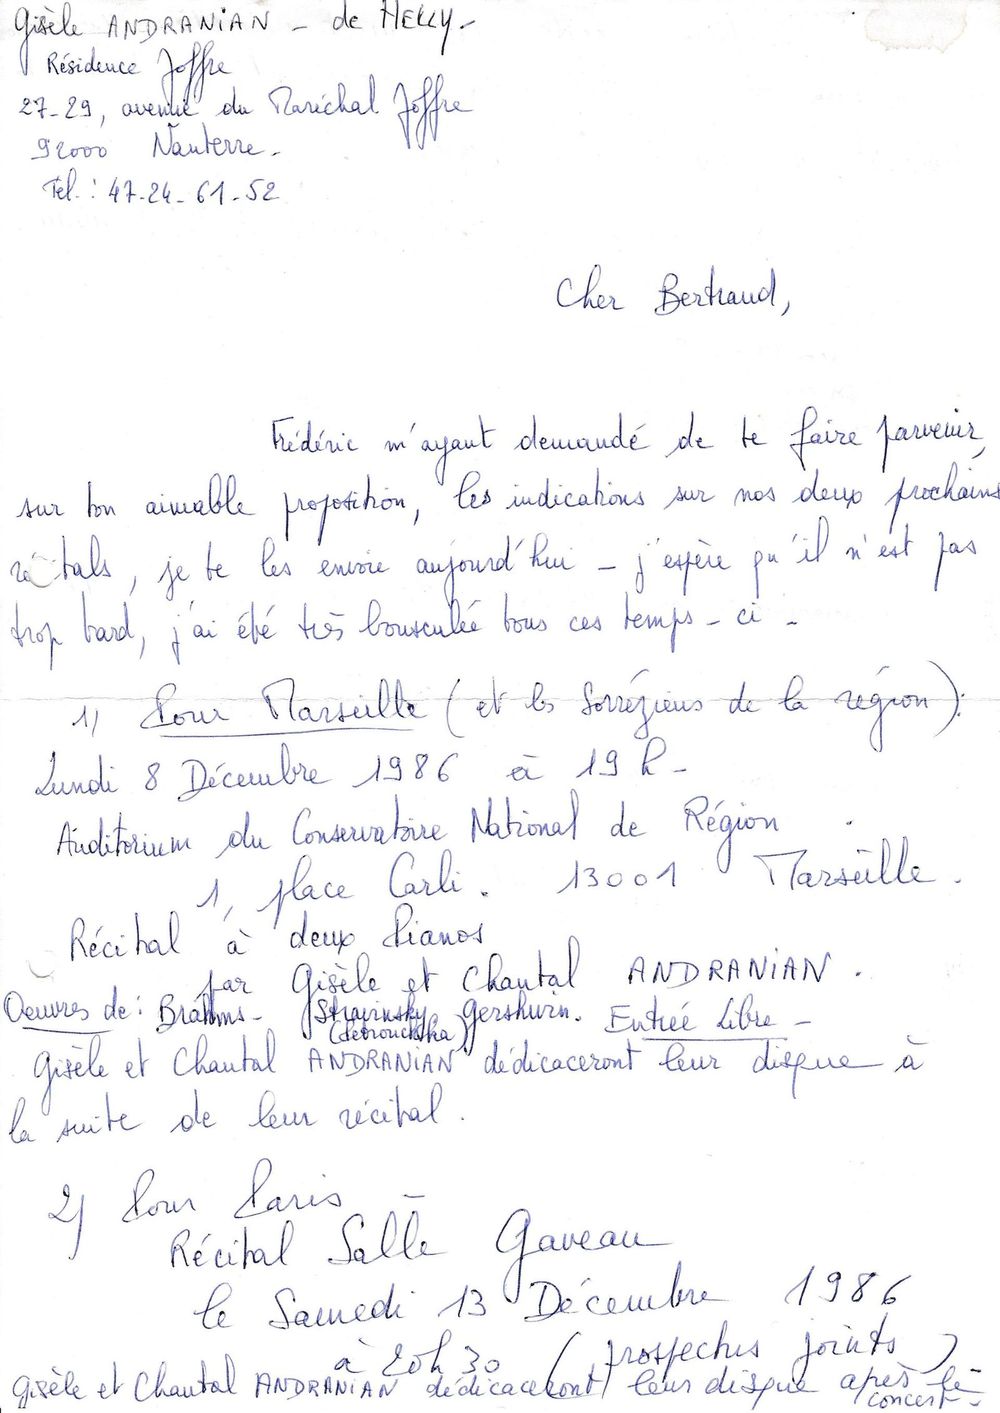 Gisèle ANDRANIAN - de HELLY -
Résidence Joffre
27-29, avenue du Maréchal Joffre
92000 Nanterre.
Tél. : 47-24-61-52
Cher Bertrand,
Frédéric m'ayant demandé de te faire parvenir,
sur ton aimable proposition, les indications sur nos deux prochains
récitals, je te les envoie aujourd'hui - j'espère qu'il n'est pas
trop tard, j'ai été très bousculée tous ces temps-ci -
1) Pour Marseille (et les Sorréziens de la région) :
Lundi 8 Décembre 1986 à 19 h -
Auditorium du Conservatoire National de Région
1, place Carli. 13001 Marseille.
Récital à deux Pianos
par Gisèle et Chantal ANDRANIAN.
Oeuvres de : Brahms - Stravinsky Gershwin. Entrée Libre -
(Petrouchka)
Gisèle et Chantal ANDRANIAN dédicaceront leur disque à
la suite de leur récital.
2) Pour Paris -
Récital Salle Gaveau
le Samedi 13 Décembre 1986
à 20h30 (prospectus joints)
Gisèle et Chantal ANDRANIAN dédicaceront leur disque après le
concert -